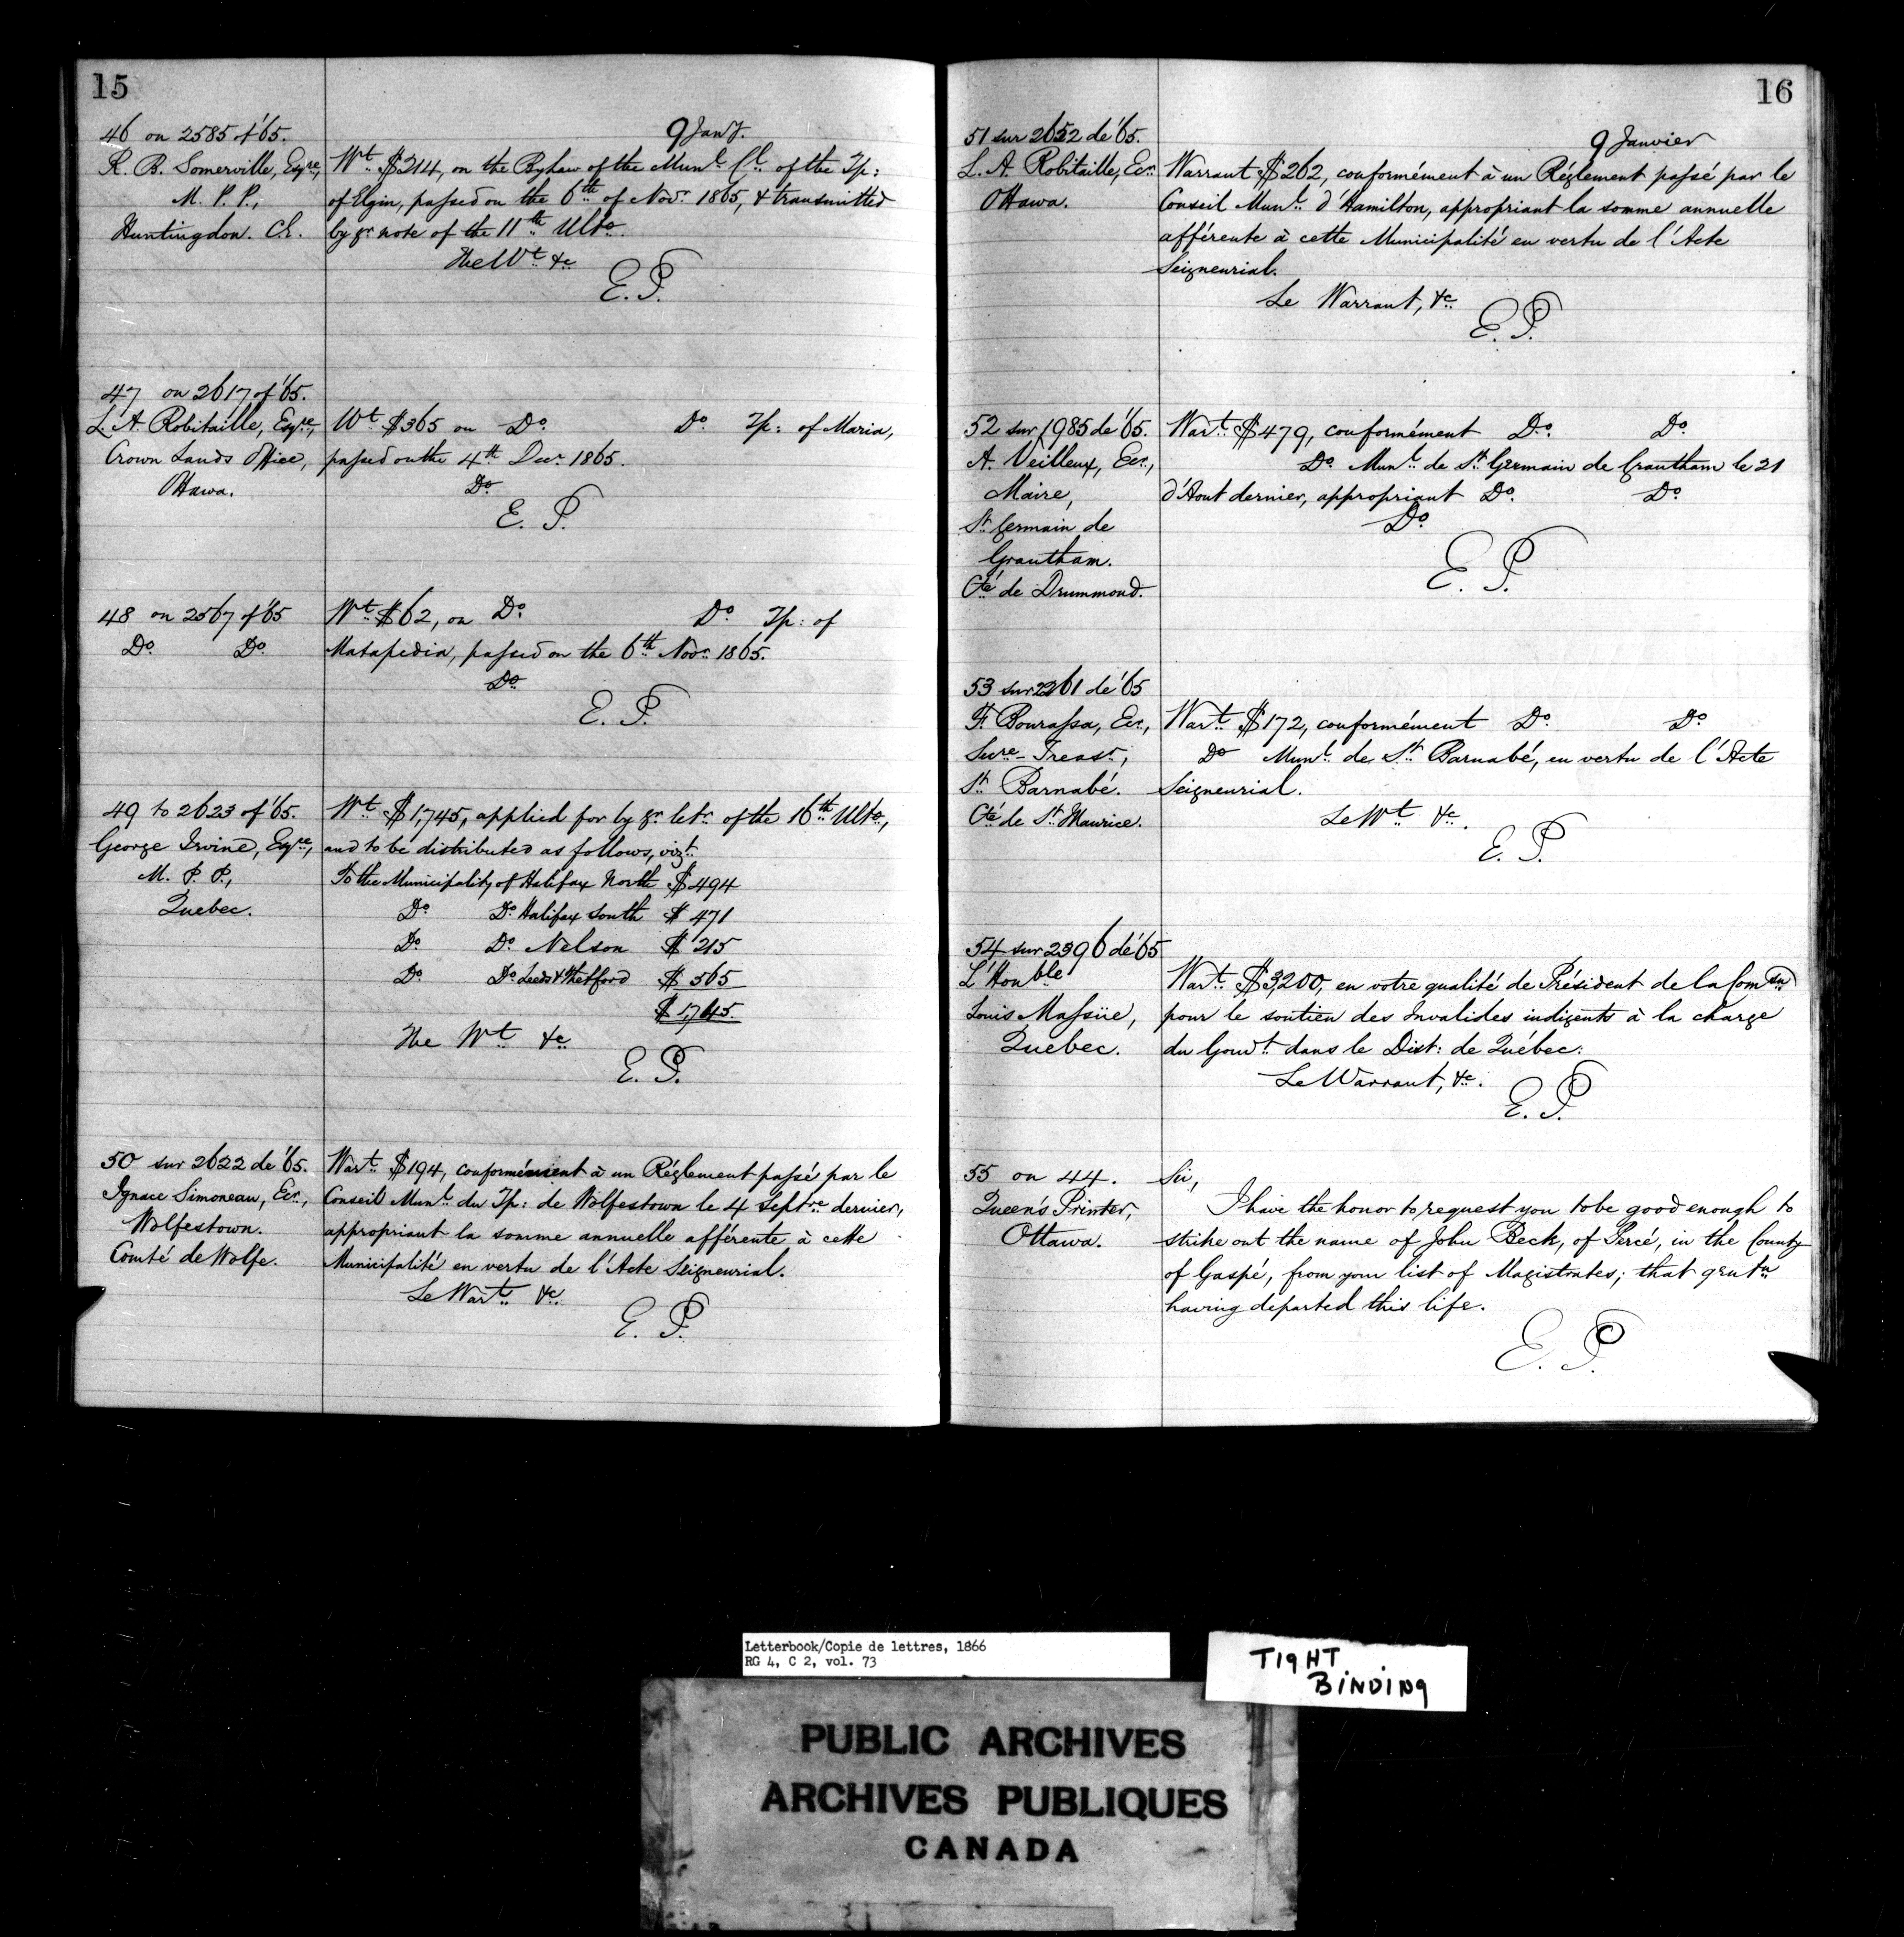 15
9 Jany.
46 on 2585 of '65.
R. B. Somerville, Esqre,
M. P. P.,
Huntingdon. C.E.
Wt. $214, on the Bylaw of the Munl. Cl. of the Tp:
of Elgin, passed on the 6th of Novr. 1865, & transmitted
by yr note of the 11th Ulto.
The Wt &c
E. P.
47 on 2617 of '65.
L. A. Robitaille, Esqre,
Crown Lands Office,
Ottawa.
Wt $365 on Do. Do. Tp: of Maria,
passed on the 4th Decr 1865.
Do.
E. P.
48 on 2567 of '65
Do. Do.
Wt. $62, on Do. Do Tp: of
Matapedia, passed on the 6th Novr. 1865.
Do.
E. P.
49 to 2623 of '65.
George Irvine, Esqre,
M. P. P.,
Quebec.
Wt. $1,745, applied for by yr. letr. of the 16th Ulto.,
and to be distributed as follows, vizt.
To the Municipality of Halifax North $494
Do. Do. Halifax South $471
Do. Do. Nelson $215
Do. Do. Leeds & Thetford $565
$1,745.
The Wt &c
E. P.
50 sur 2622 de '65.
Ignace Simoneau, Ecr.,
Wolfestown.
Comté de Wolfe.
Wart. $194, conformément à un Réglement passé par le
Conseil Munl. du Tp: de Wolfestown le 4 Septre dernier,
appropriant la somme annuelle afférente à cette
Municipalité en vertu de l'Acte Seigneurial.
Le Wart. &c.
E. P.
16
9 Janvier
51 sur 2652 de '65.
L. A. Robitaille, Ecr.
Ottawa.
Warrant $262, conformément à un Réglement passé par le
Conseil Munl. d'Hamilton, appropriant la somme annuelle
afférente à cette Municipalité en vertu de l'Acte
Seigneurial.
Le Warrant, &c.
E. P.
52 sur 1985 de '65.
A. Veilleux, Ecr.,
Maire,
St. Germain de
Grantham.
Cté de Drummond.
Wart. $479, conformément Do. Do.
Do. Munl. de St. Germain de Grantham le 21
d'Aout dernier, appropriant Do. Do.
Do.
E. P.
53 sur 2261 de '65
F. Bourassa, Ecr.,
Secre-Treasr,
St. Barnabé.
Cté de St. Maurice.
Wart. $172, conformément Do. Do.
Do Munl. de St. Barnabé, en vertu de l'Acte
Seigneurial.
Le Wt &c.
E. P.
54 sur 2396 de '65
L'Honble
Louis Massüe,
Quebec.
Wart. $3,200, en votre qualité de Président de la Comsn
pour le soutien des Invalides indigents à la charge
du Gouvt. dans le Dist: de Québec.
Le Warrant, &c.
E. P.
55 on 44.
Queen's Printer,
Ottawa.
Sir,
I have the honor to request you to be good enough to
strike out the name of John Beck, of Percé, in the County
of Gaspé, from your list of Magistrates; that gentn
having departed this life.
E. P.
Letterbook/Copie de lettres, 1866
RG 4, C 2, vol. 73
TIGHT
BINDING
PUBLIC ARCHIVES
ARCHIVES PUBLIQUES
CANADA